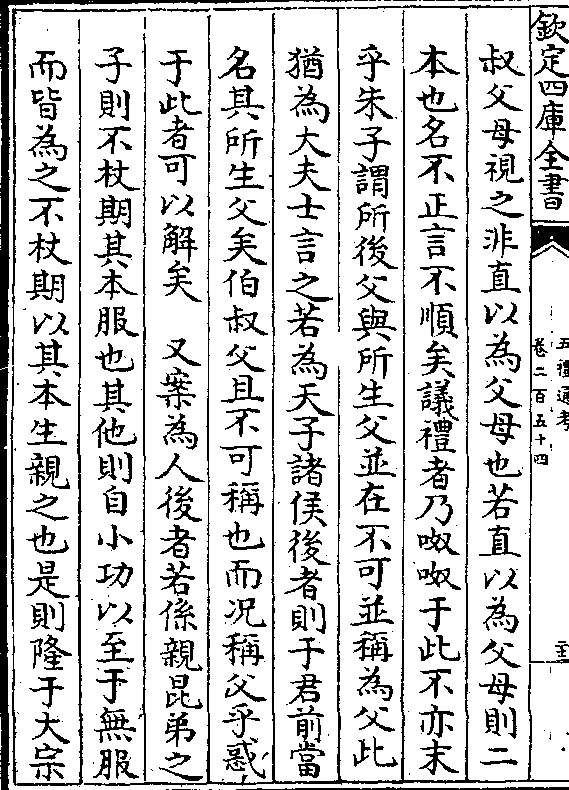 欽定四庫全書
五禮通考
卷二百五十四
叔父母視之非直以為父母也若直以為父母則二
本也名不正言不順矣議禮者乃呶呶于此不亦末
乎朱子謂所後父與所生父並在不可並稱為父此
猶為大夫士言之若為天子諸侯後者則于君前當
名其所生父矣伯叔父且不可稱也而况稱父乎惑
于此者可以解矣　又案為人後者若係親昆弟之
子則不杖期其本服也其他則自小功以至于無服
而皆為之不杖期以其本生親之也是則隆于大宗